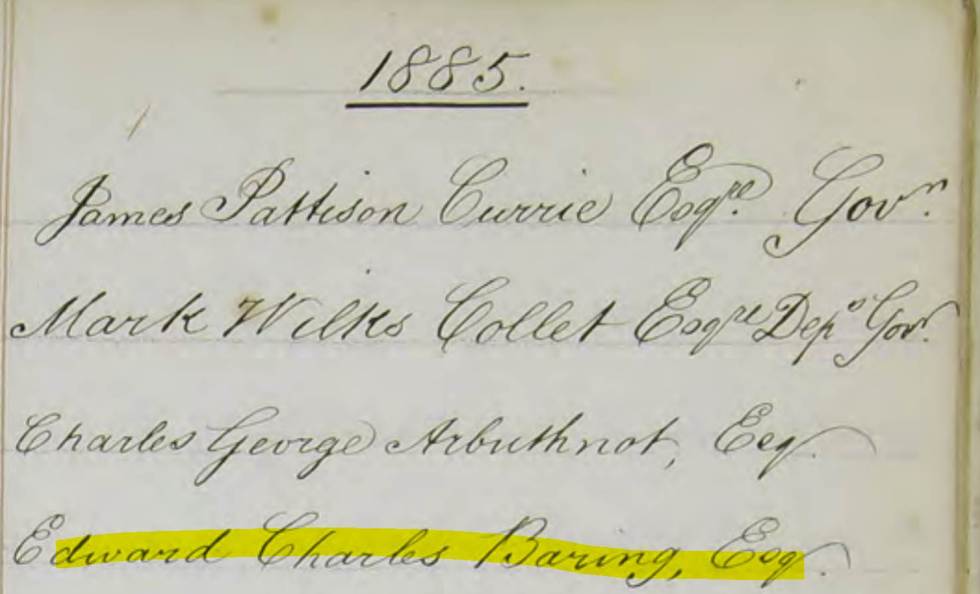 1885.
James Pattison Currie Esqre. Govr.
Mark Wilks Collet Esqre Depo Govr.
Charles George Arbuthnot, Esq.
Edward Charles Baring, Esq.